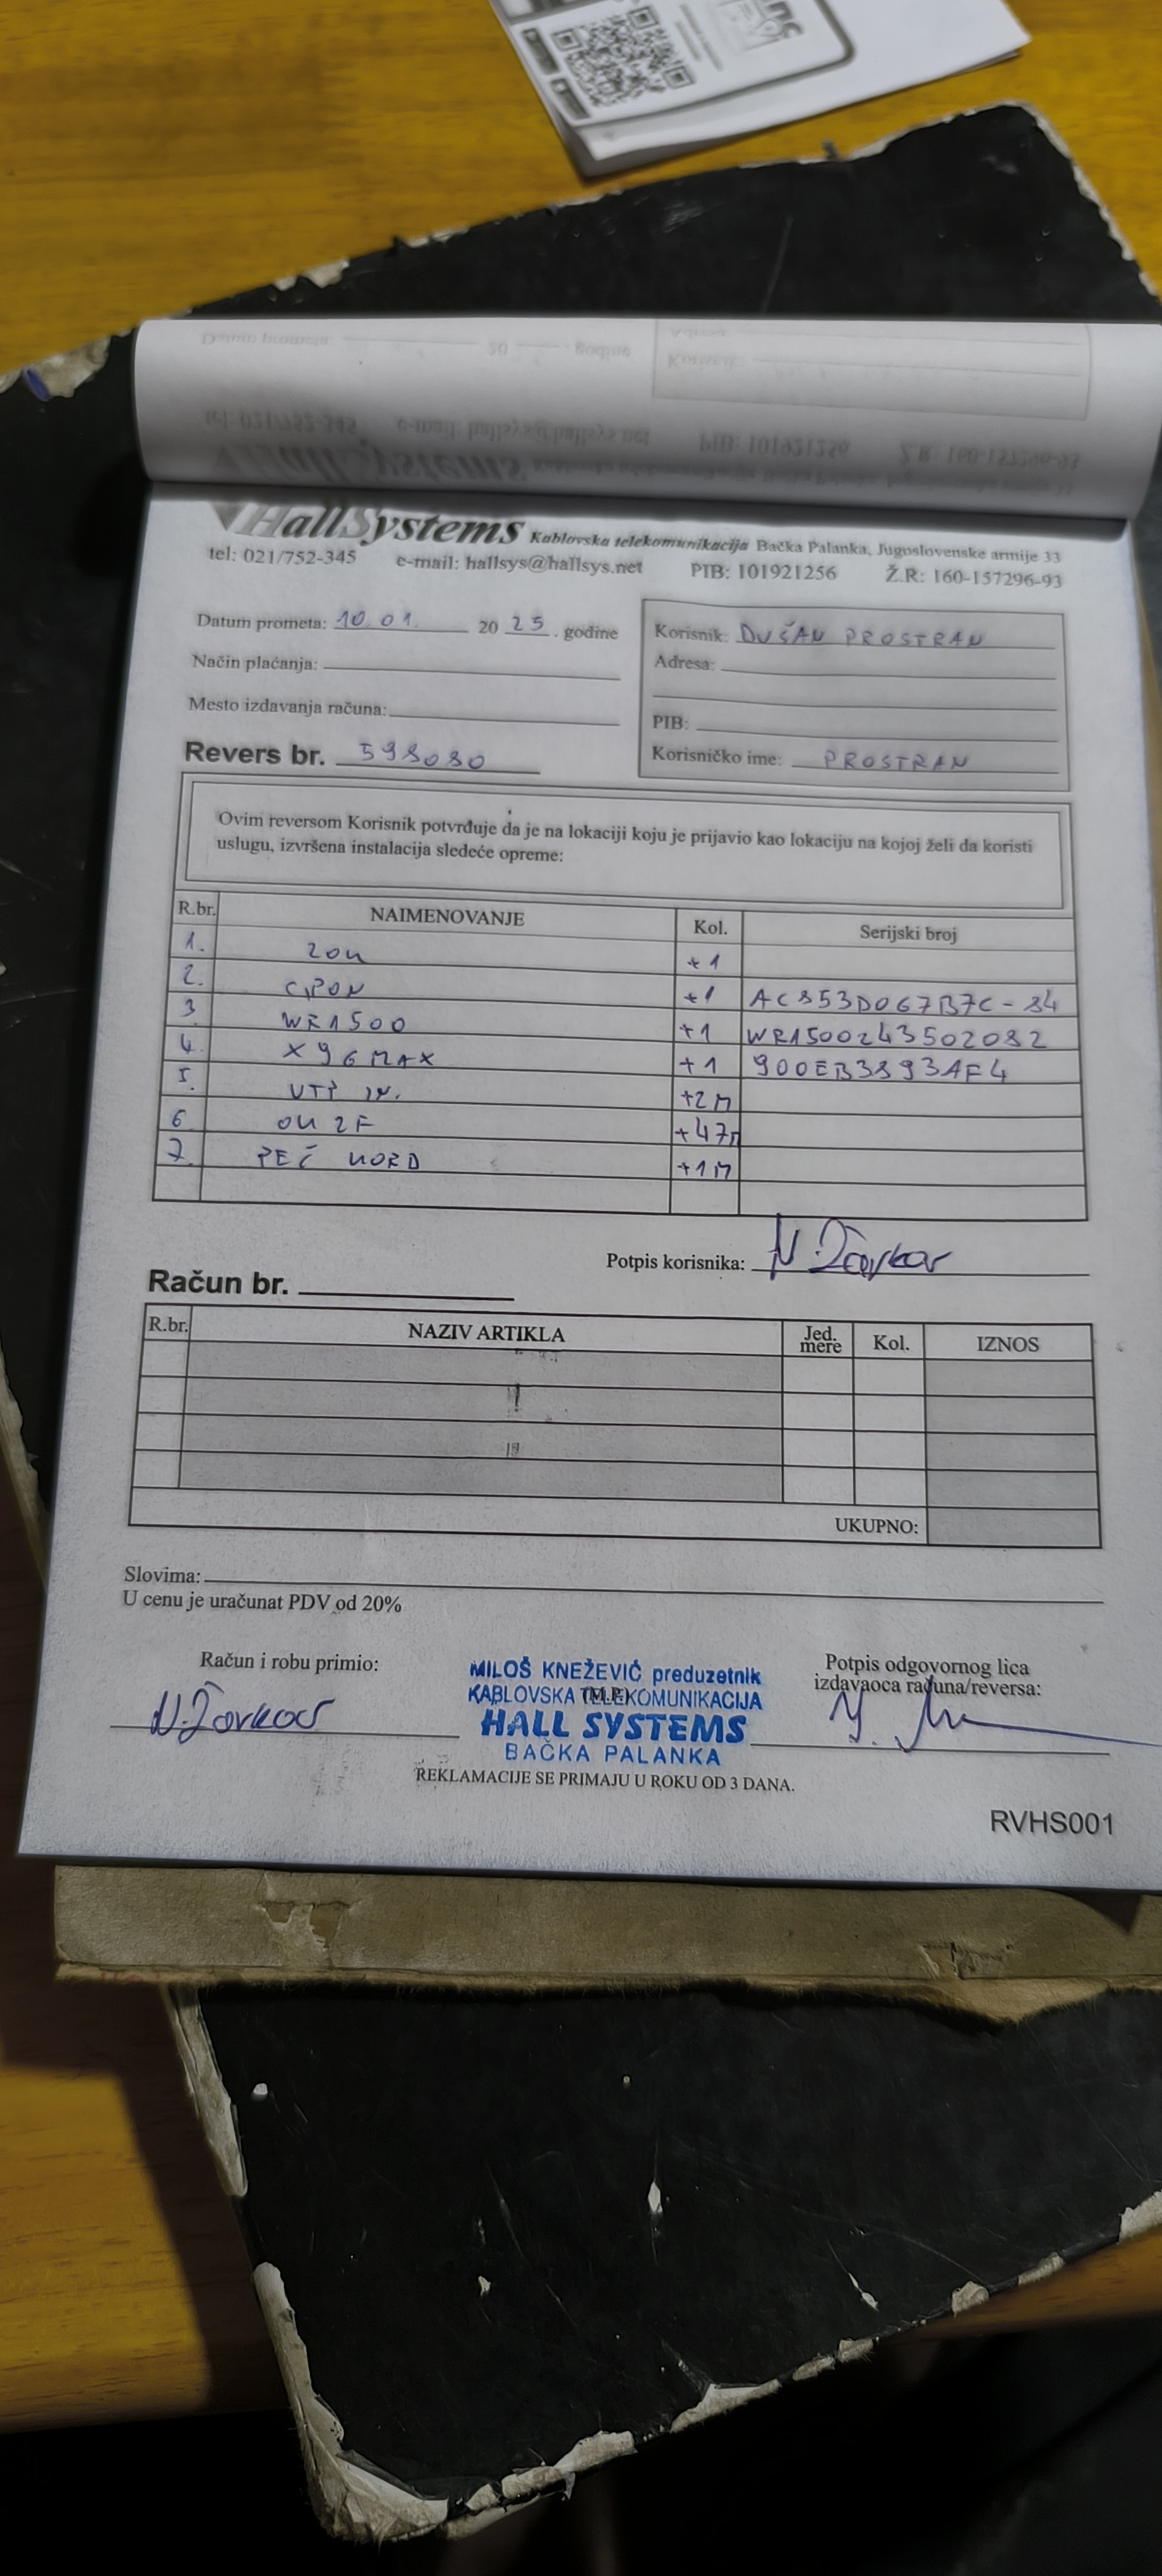 HallSystems Kablovska telekomunikacija Bačka Palanka, Jugoslovenske armije 33
tel: 021/752-345 e-mail: hallsys@hallsys.net PIB: 101921256 Ž.R: 160-157296-93
Datum prometa: 10.01. 20 25. godine
Način plaćanja:
Mesto izdavanja računa:
Revers br. 598080
Korisnik: DUŠAN PROSTRAN
Adresa:
PIB:
Korisničko ime: PROSTRAN
Ovim reversom Korisnik potvrđuje da je na lokaciji koju je prijavio kao lokaciju na kojoj želi da koristi
uslugu, izvršena instalacija sledeće opreme:
R.br. NAIMENOVANJE Kol. Serijski broj
1. ZOK +1
2. GPON +1 AC853D067B7C-84
3 WR1500 +1 WR1500243502082
4. X96MAX +1 900EB3893AF4
5. UTP +2M
6 OK 2F +47M
7. +1M
Potpis korisnika:
Račun br.
R.br. NAZIV ARTIKLA Jed. mere Kol. IZNOS
UKUPNO:
Slovima:
U cenu je uračunat PDV od 20%
Račun i robu primio:
MILOŠ KNEŽEVIĆ preduzetnik
KABLOVSKA TELEKOMUNIKACIJA
(M.P.)
HALL SYSTEMS
BAČKA PALANKA
Potpis odgovornog lica
izdavaoca računa/reversa:
REKLAMACIJE SE PRIMAJU U ROKU OD 3 DANA.
RVHS001